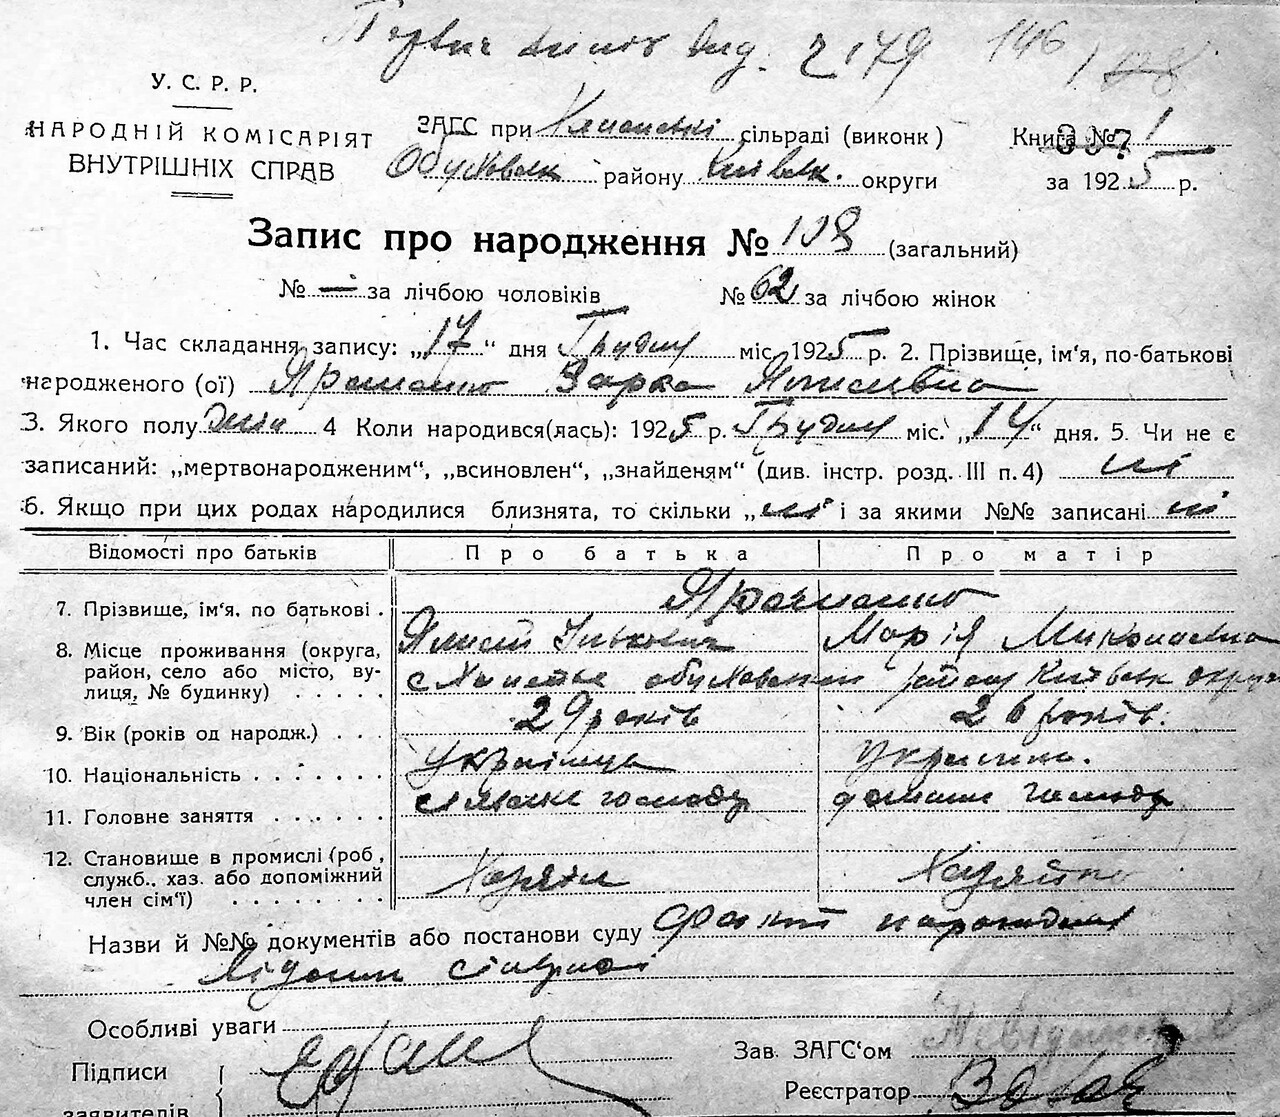 Первич выпись выд. 2 179 146 / 108
У. С. Р. Р.
НАРОДНІЙ КОМІСАРІЯТ
ВНУТРІШНІХ СПРАВ
ЗАГС при сільраді (виконк)
Обуховськ району Київськ. округи
Книга № 1
за 1925 р.
Запис про народження № 108 (загальний)
№ — за лічбою чоловіків № 62 за лічбою жінок
1. Час складання запису: „17“ дня Грудня міс. 1925 р. 2. Прізвище, ім'я, по-батькові
народженого (ої)
3. Якого полу жін 4 Коли народився(лась): 1925 р. Грудня міс. „14“ дня. 5. Чи не є
записаний: „мертвонародженим“, „всиновлен“, „знайденям“ (див. інстр. розд. III п. 4) ні
6. Якщо при цих родах народилися близнята, то скільки „ні і за якими №№ записані ні
Відомості про батьків Про батька Про матір
7. Прізвище, ім'я, по батькові .
Марія Миколаєвна
8. Місце проживання (округа,
район, село або місто, ву-
лиця, № будинку) . . . . .
обуховськ району Київськ округи
9. Вік (років од народж.) . . . 29 років 26 років.
10. Національність . . . . . . . українець українка.
11. Головне заняття . . . . . . сільське господ домашнє господ
12. Становище в промислі (роб.,
служб., хаз. або допоміжний
член сім'ї) . . . . . . . . Хазяїн Хазяйка
Назви й №№ документів або постанови суду факт народження
відомий сільраді
Особливі уваги
Підписи
заявителів
Зав. ЗАГС'ом
Реєстратор